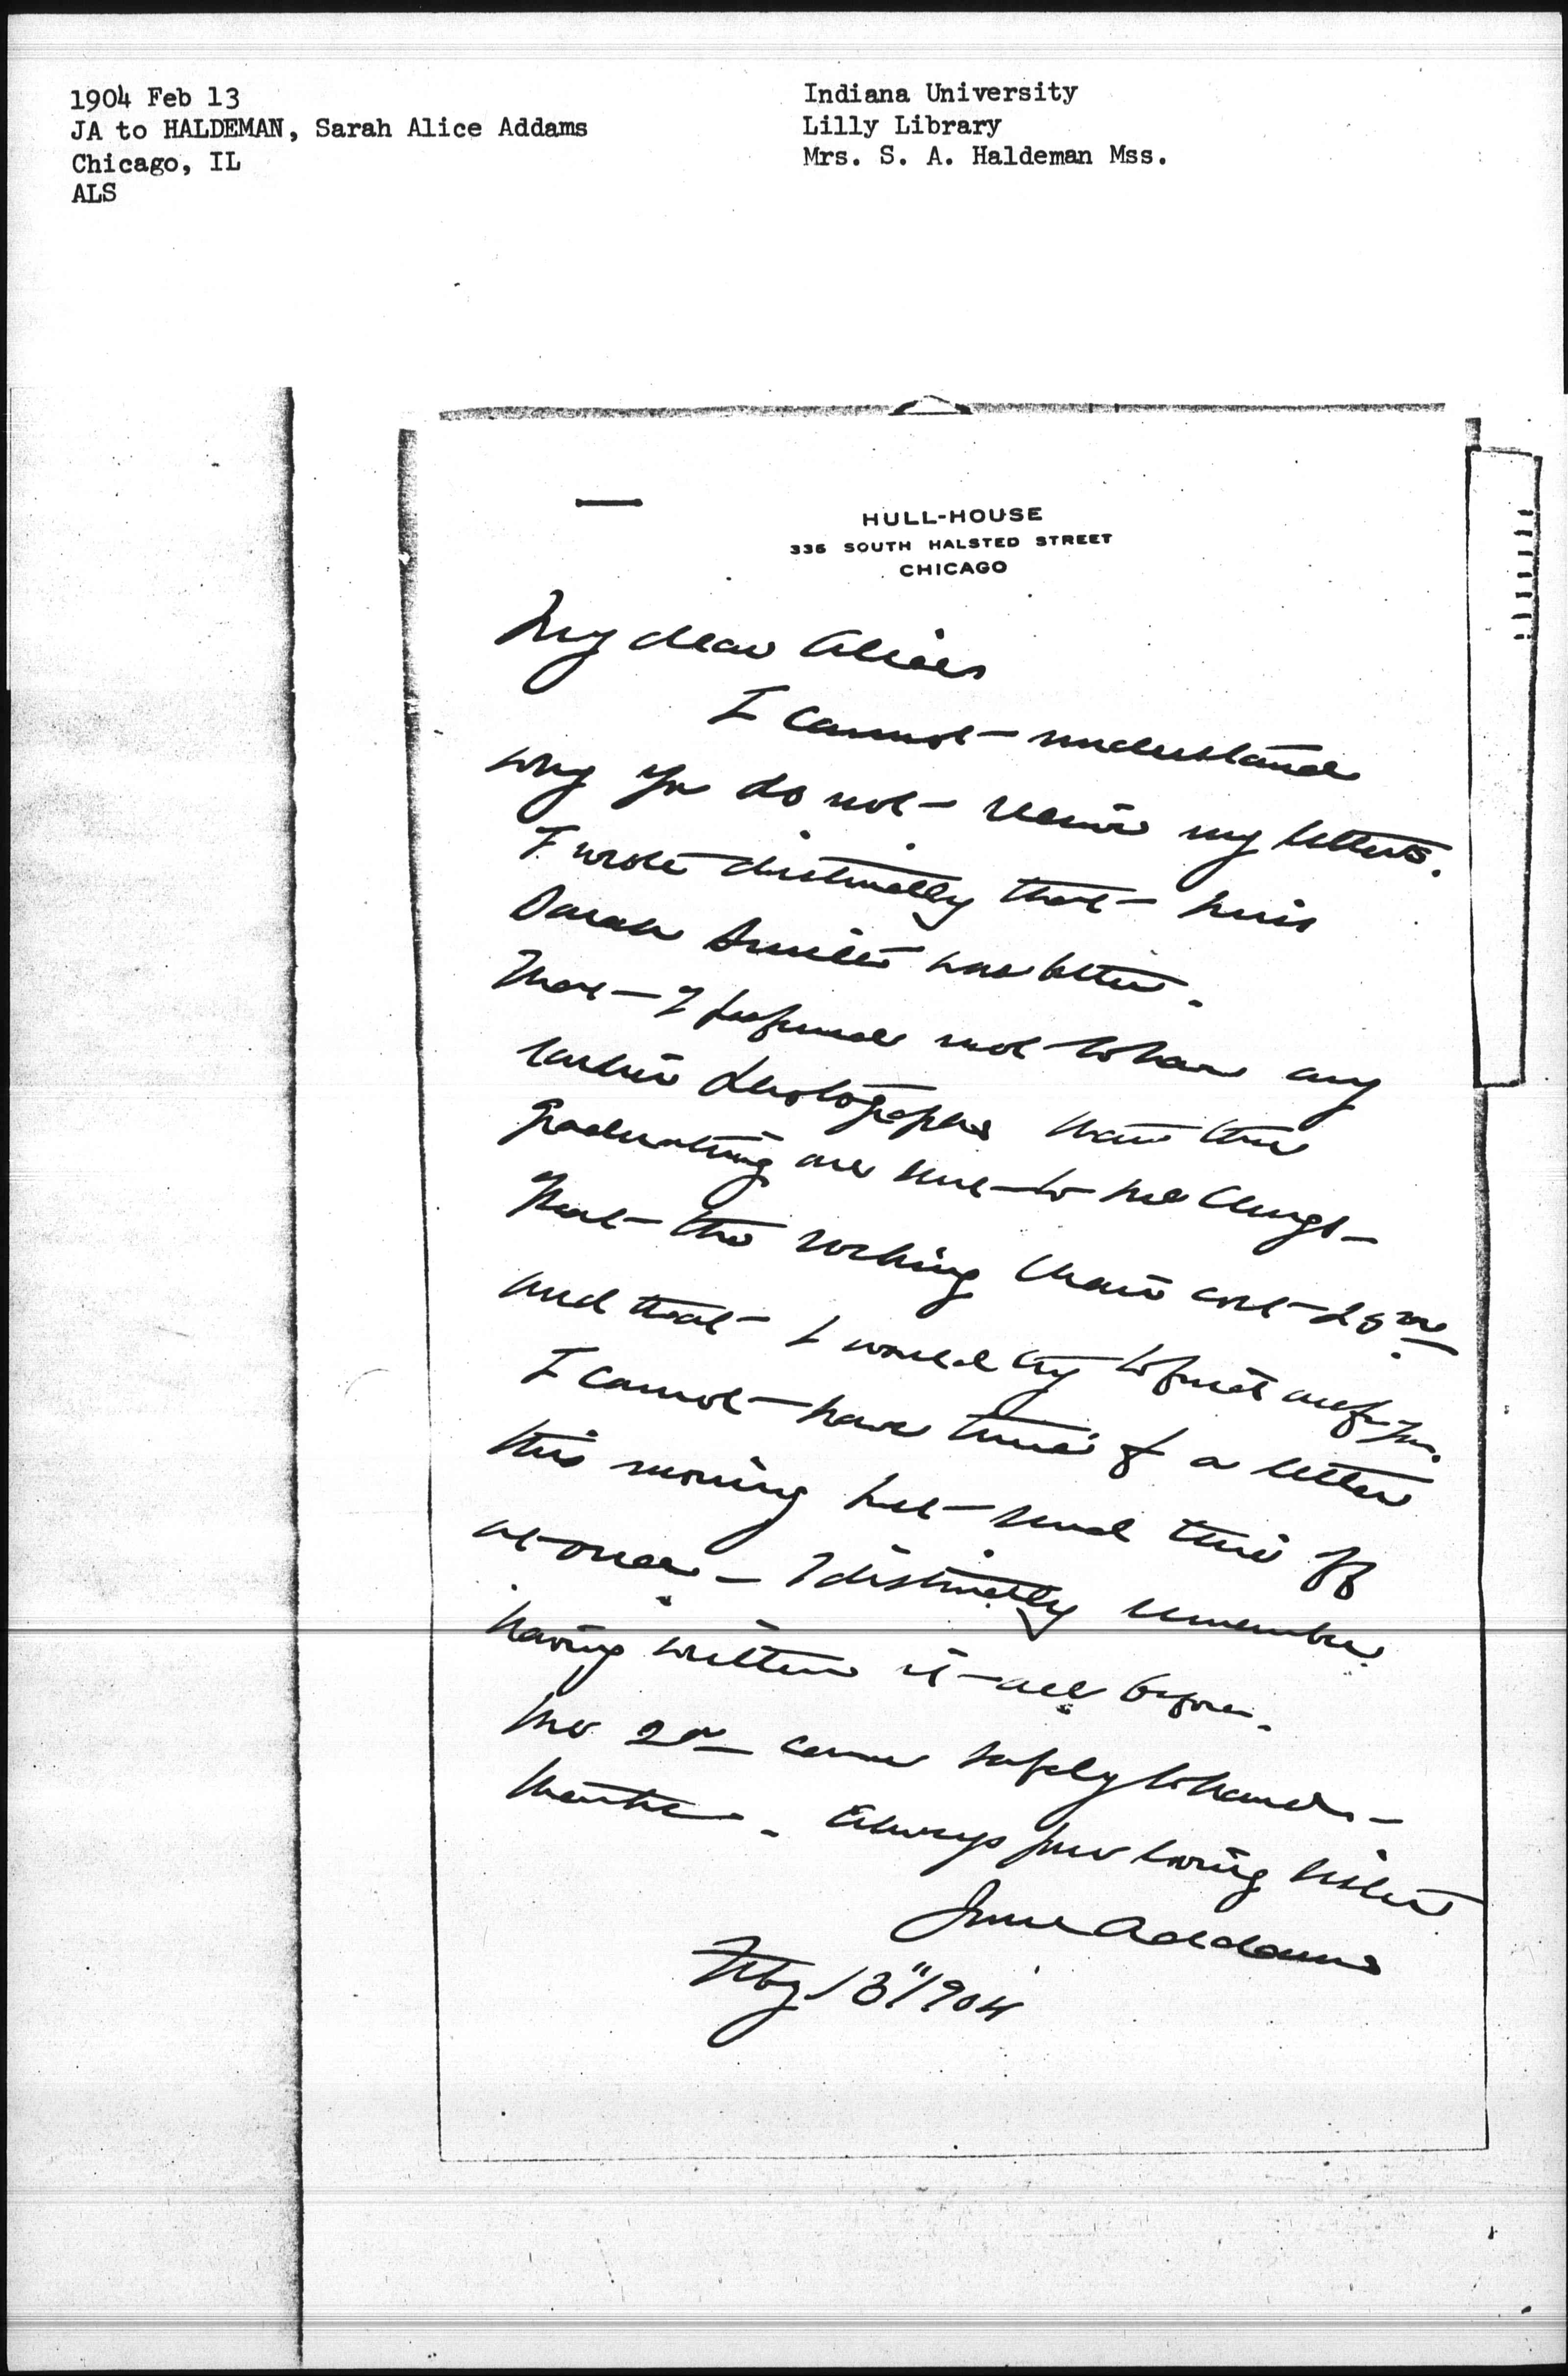 1904 Feb 13
JA to HALDEMAN, Sarah Alice Addams
Chicago, IL
ALS
Indiana University
Lilly Library
Mrs. S. A. Haldeman Mss.
HULL-HOUSE
335 SOUTH HALSTED STREET
CHICAGO
My dear Alice
I cannot understand
why you do not receive my letters.
I wrote distinctly that Miss
Sarah Smith was better.
That I happened not to have any
earlier photographs than the
graduating one sent to me
That the rocking chair cost
and that I would try to
I cannot have time for a letter
this morning but send this off
at once – I distinctly remember
having written it all before.
came safely to hand –
Always your loving sister
Jane Addams
Feby 13" 1904